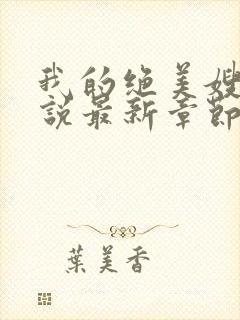 我的绝美嫂
說最新章節
葉美香